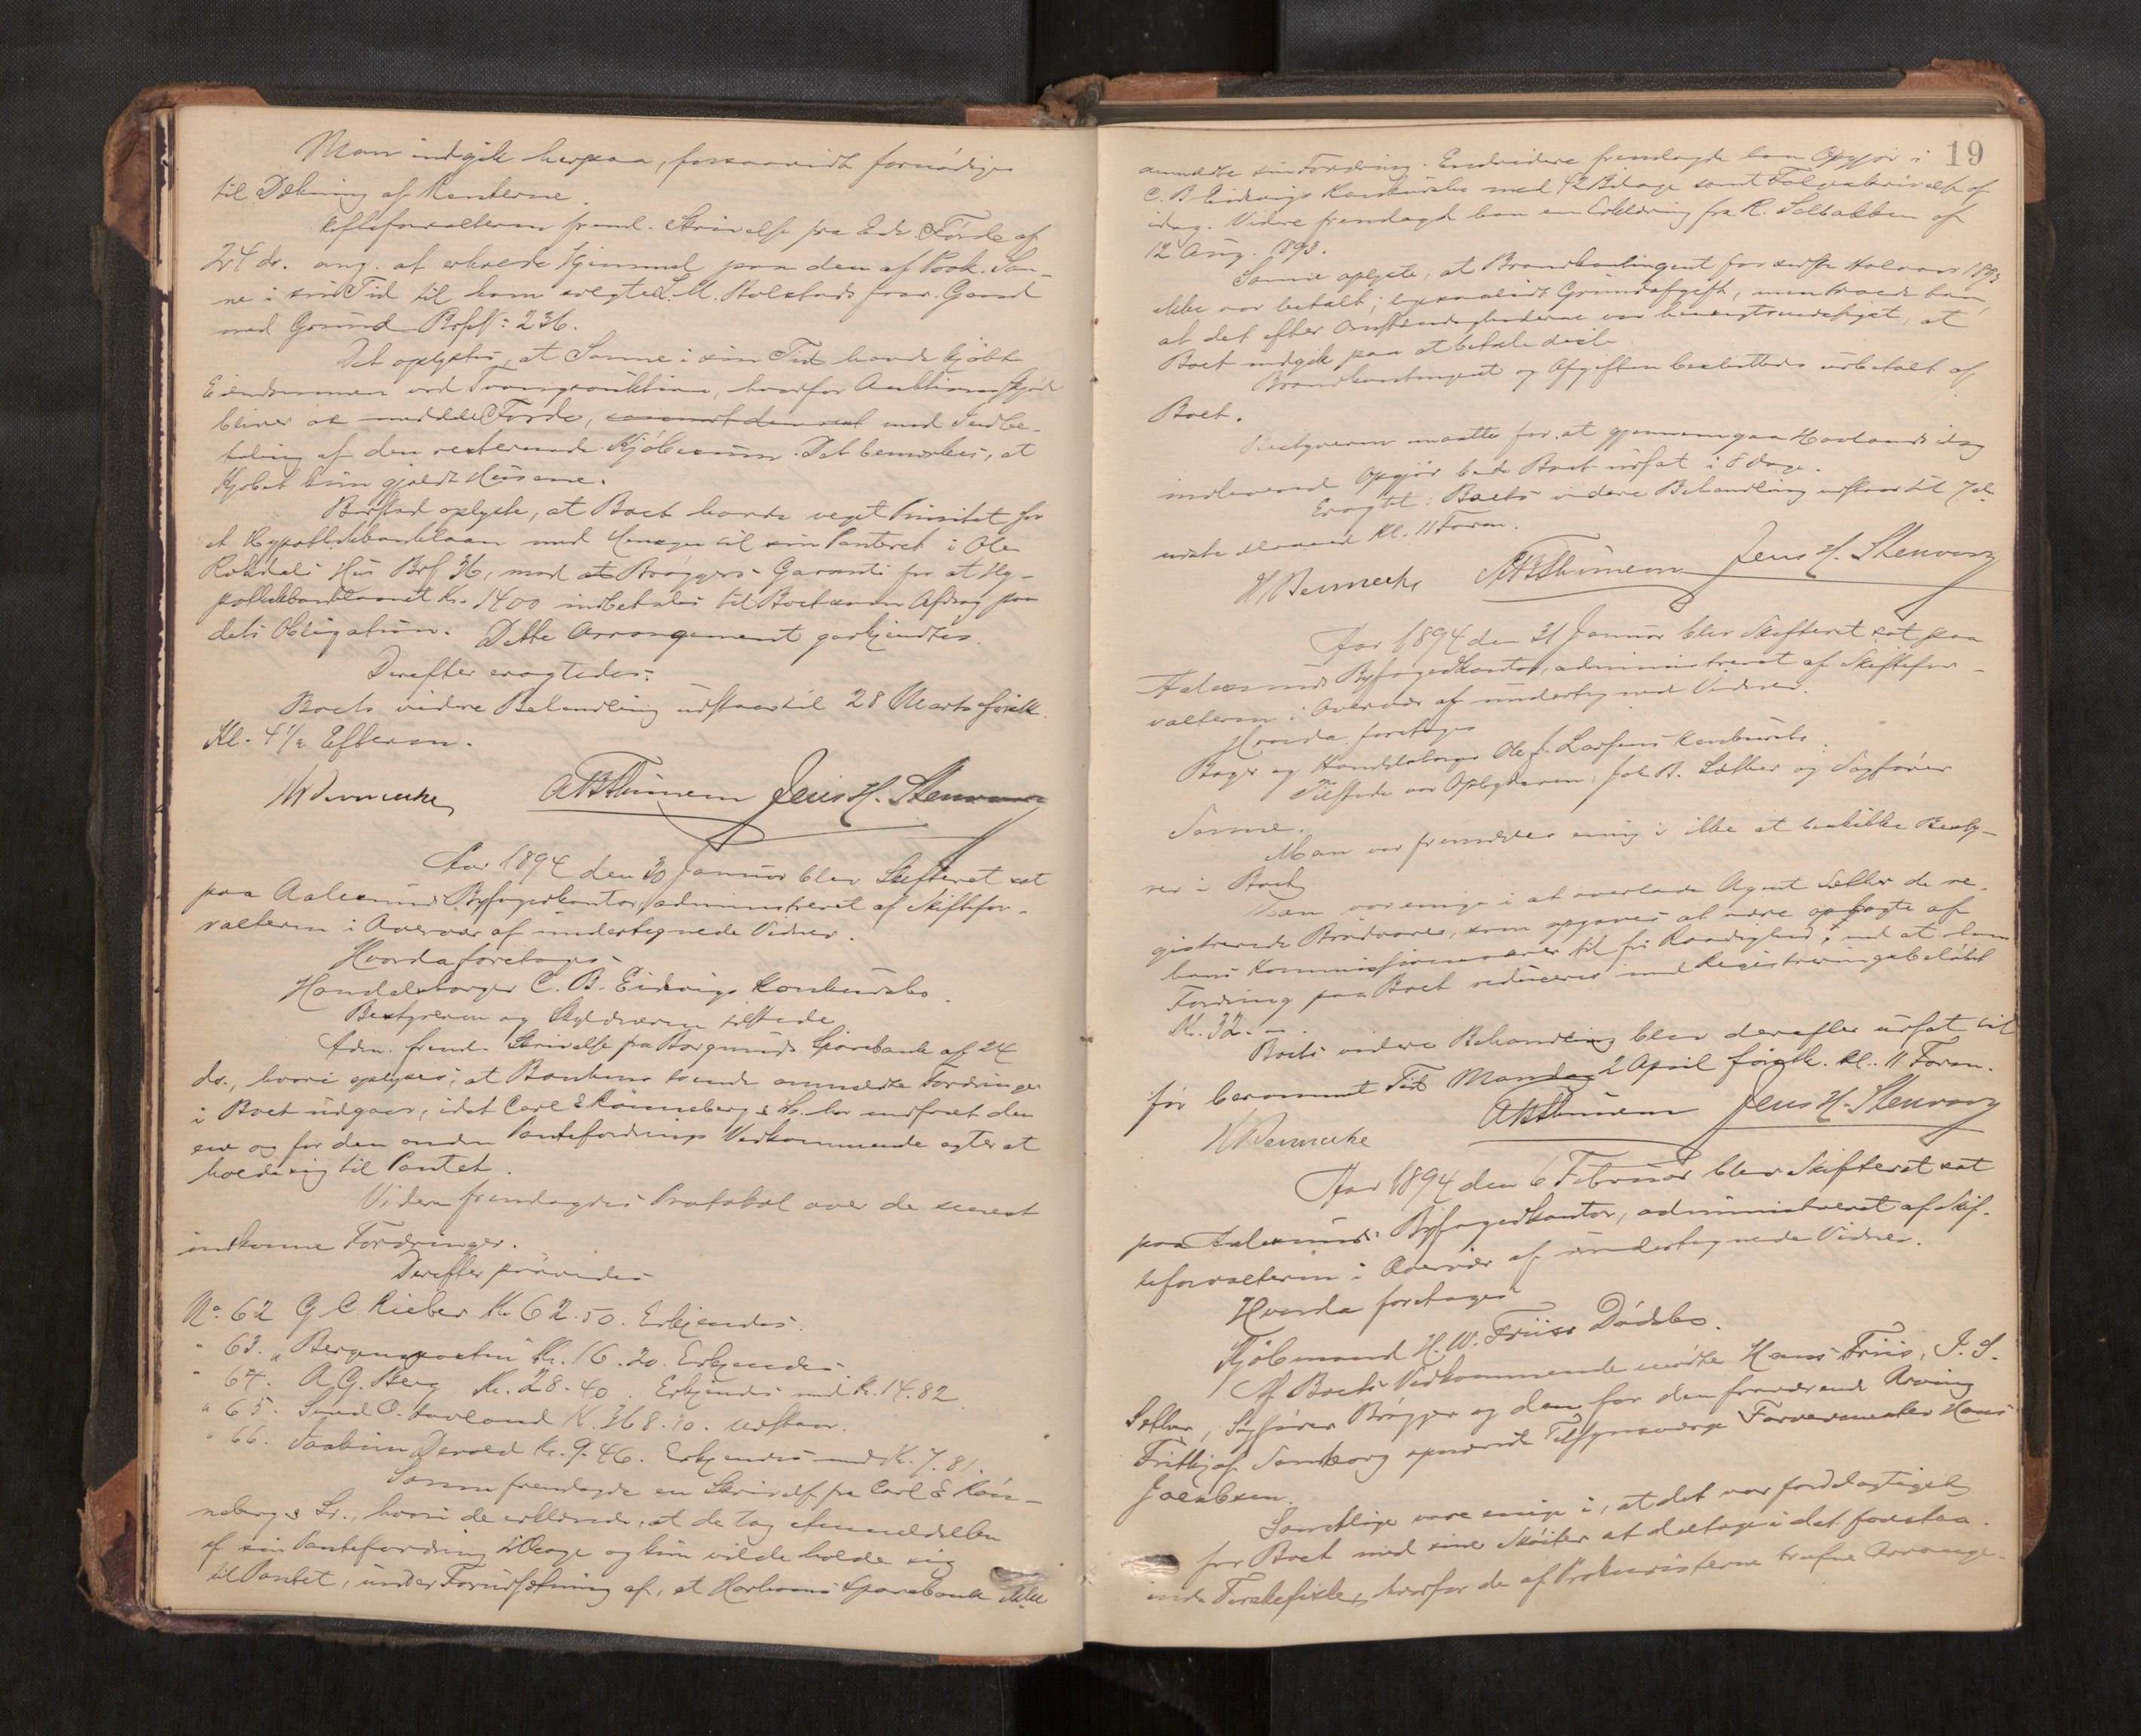 Man indgik herpaa, forsaavidt fornødiges
til Dækning af Renterne.
Skifteforvalteren freml. Skrivelse fra Edv. Førde af
24 ds. ang. at erholde Hjemmel paa den af Prok. San-
ne i sin Tid til ham solgte L. M. Rolstads forr. Gaard
med Grund Brf№: 236.
Det oplystes, at Sanne i sin Tid havde kjøbt
Eiendommen ved Tvangsauktion, hvorfor Auktionsskjøde
bliver at meddele Førde, mod Indbe-
taling af den resterende Kjøbesum. Det bemærkes, at
Kjøbet kun gjaldt Husene.
oplyste, at Boet havde veget Prioritet for
et Hypothekbanklaan med Hensyn til sin Panteret i Ole
Hus Brf 36, mod at Brøggers Garanti for at Hy-
pothekbanklaanet Kr. 1400 indbetales til Boet som Afdrag paa
dets Obligation. Dette Arrangement godkjendtes.
Derefter eragtedes:
Boets videre Behandling udstaar til 28 Marts førstk.
Kl. 4 1/2 Efterm.
Jens H. Stenvaag
Aar 1894 den 30 Januar blev Skifteret sat
paa Aalesunds Byfogedkontor, administreret af Skiftefor-
valteren i Overvær af undertegnede Vidner.
Hvorda foretoges
Handelsborger C. B. Eidsvigs Konkursbo.
Bestyreren og Skyldneren tilstede
Adm. freml. Skrivelse fra Borgunds Sparebank af 24
ds., hvori oplyses, at Bankens tvende anmeldte Fordringer
i Boet udgaar, idet Carl E Rønneberg & S. har indfriet den
ene og for den anden Pantefordrings Vedkommende agter at
holde sig til Pantet.
Videre fremlagdes Protokol over de senest
indkomne Fordringer.
Derefter prøvedes
No 62 G. C. Rieber Kr. 62.50. Erkjendes.
" 63. " Bergensposten Kr. 16.20. Erkjendes
" 64. A. G. Berg Kr. 28.40. Erkjendes med Kr. 14.82
" 65. Send O. Hovland K. 368.10. Udstaar.
" 66. Joakim Devold Kr. 9.46. Erkjendes med K. 7.81.
Sanne fremlagde en Skrivelse fra Carl E Røn-
neberg & S., hvori de erklærede, at de tog Anmeldelsen
af sin Pantefordring tilbage og kun vilde holde sig
til Pantet, under Forudsætning af, at Harhams Sparebank ikke
19
anmeldte sin Fordring. Endvidere fremlagde han Opgjør i
C. B. Eidsvigs Konkursbo med 42 Bilage samt Følgeskrivelse af
idag. Videre fremlagde han en Erklæring fra R. Solbakken af
12 Aug. 1893.
Sanne oplyste, at Brandkontingent for sidste Halvaar 1893
ikke var betalt; ligesaalidt Grundafgift, men troede han,
at det efter Omstændighederne var hensigtsmæssigst, at
Boet indgik paa at betale disse
Brandkontingent og Afgiften besluttedes udbetalt af
Boet.
Bestyreren maatte for at gjennemgaa Hovlands idag
indleverede Opgjør bede Boet udsat i 8 dage.
Eragtet: Boets videre Behandling udstaar til 7de
næste Maaned Kl. 11 Form.
Jens H. Stenvaag
Aar 1894 den 31 Januar blev Skifteret sat paa
Aalesunds Byfogedkontor, administreret af Skiftefor-
valteren i Overvær af undertegnede Vidner.
Hvorda foretoges
Bager og Handelsborger Ole J. Larsens Konkursbo.
Tilstede var Opbyderen, Joh R. Sætter og Sagfører
Sanne.
Man var fremdeles enig i ikke at beskikke Besty-
rer i Boet
Man var enige i at overlade Agent Sætter de re-
gistrerede Brødvarer, som opgaves at være opbragte af
hans Kommissionsvarer til fri Raadighed, ved at hans
Fordring paa Boet reduceres med Registreringsbeløbet
Kr. 32.–.
Boets videre Behandling blev derefter udsat til
før berammet Tid Mandag 2 April førstk. Kl. 11 Form.
Jens H. Stenvaag
Aar 1894 den 6 Februar blev Skifteret sat
paa Aalesunds Byfogedkontor, administreret af Skif-
teforvalteren i Overvær af undertegnede Vidner.
Hvorda foretoges
Kjøbmand H. W. Friis's Dødsbo.
Af Boets Vedkommende mødte Hans Friis, I. S.
Sætter, Sagfører Brøgger og den for den fraværende Arving
Frithjof Sandborg opnævnte Tilsynsværge Farvermester Hans
Jacobsen.
Samtlige vare enige i, at det var fordelagtigst
for Boet med sine Skøiter at deltage i det forestaa-
ende Torskefiske, hvorfor de af Prokuristerne trufne Arrange-